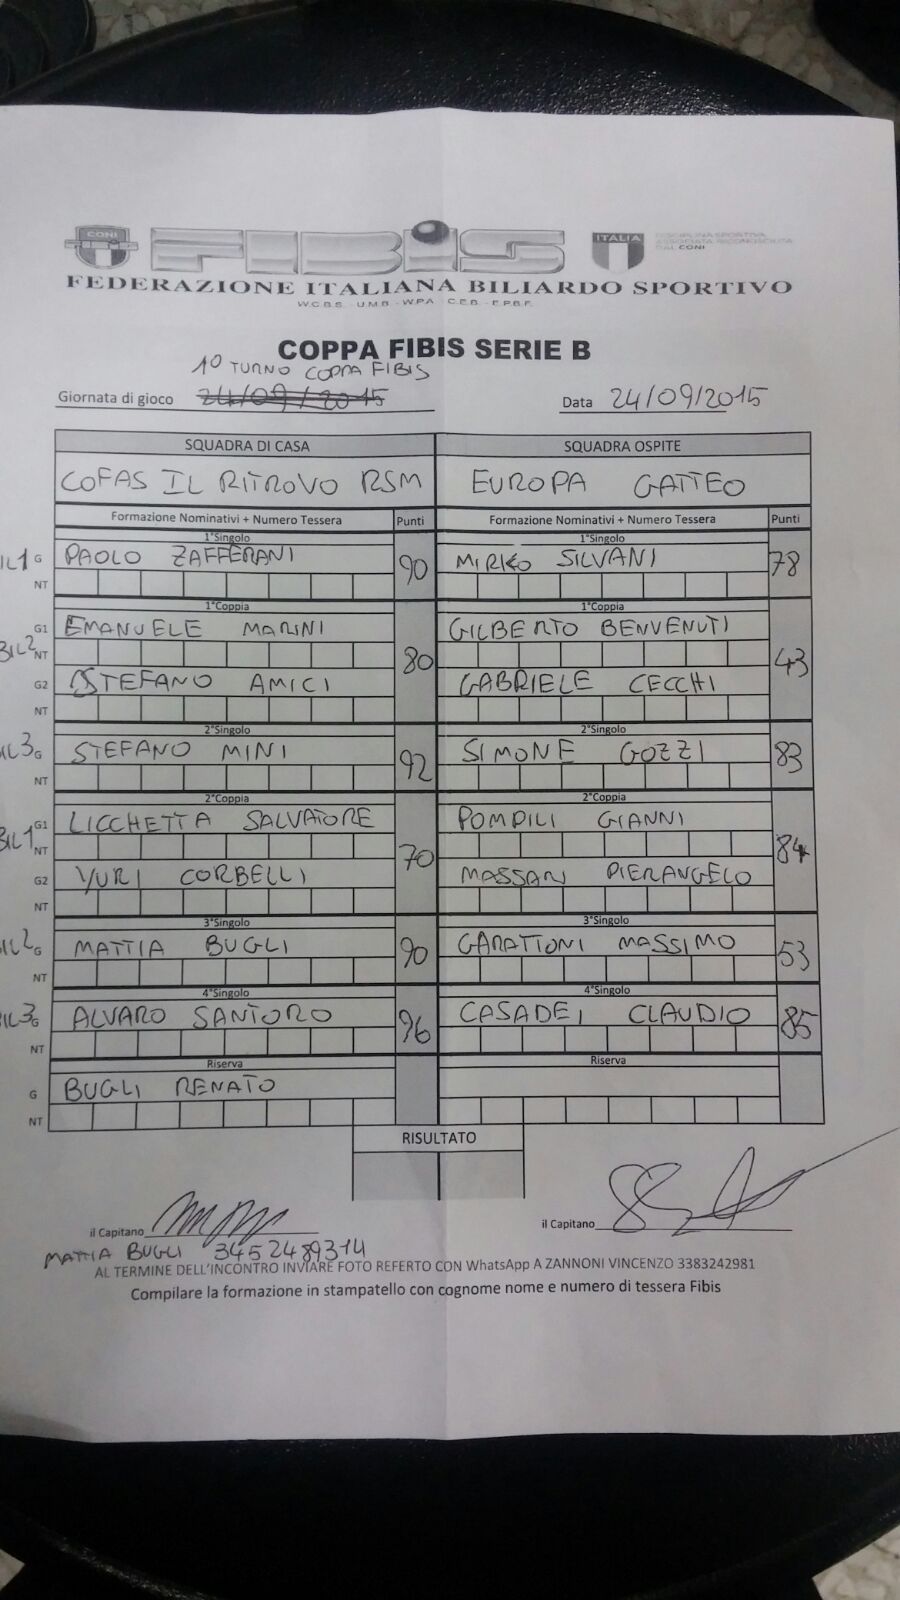 CONI
FIBIS
ITALIA
DISCIPLINA SPORTIVA
ASSOCIATA RICONOSCIUTA
DAL CONI
FEDERAZIONE ITALIANA BILIARDO SPORTIVO
W.C.B.S. - U.M.B. - W.P.A. - C.E.B. - E.P.B.F.
COPPA FIBIS SERIE B
1° TURNO COPPA FIBIS
Giornata di gioco 24/09/2015 Data 24/09/2015
SQUADRA DI CASA SQUADRA OSPITE
COFAS IL RITROVO RSM EUROPA GATTEO
Formazione Nominativi + Numero Tessera Punti Formazione Nominativi + Numero Tessera Punti
1°Singolo 1°Singolo
BIL1 G PAOLO ZAFFERANI 90 MIRKO SILVANI 78
NT
1°Coppia 1°Coppia
G1 EMANUELE MARINI GILBERTO BENVENUTI
BIL2 NT 80 43
G2 STEFANO AMICI GABRIELE CECCHI
NT
2°Singolo 2°Singolo
BIL3 G STEFANO MINI 92 SIMONE GOZZI 83
NT
2°Coppia 2°Coppia
G1 LICCHETTA SALVATORE POMPILI GIANNI
BIL1 NT 70 84
G2 YURI CORBELLI MASSARI PIERANGELO
NT
3°Singolo 3°Singolo
BIL2 G MATTIA BUGLI 90 GARATTONI MASSIMO 53
NT
4°Singolo 4°Singolo
BIL3 G ALVARO SANTORO 96 CASADEI CLAUDIO 85
NT
Riserva Riserva
G BUGLI RENATO
NT
RISULTATO
il Capitano il Capitano
MATTIA BUGLI 3452489314
AL TERMINE DELL'INCONTRO INVIARE FOTO REFERTO CON WhatsApp A ZANNONI VINCENZO 3383242981
Compilare la formazione in stampatello con cognome nome e numero di tessera Fibis